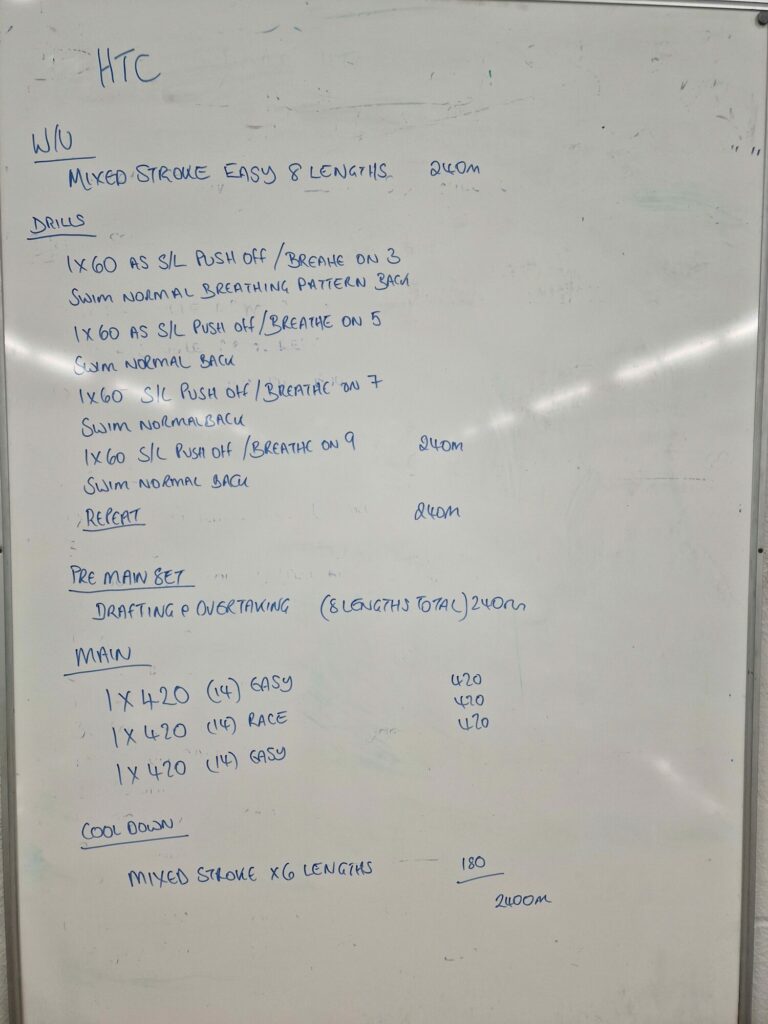 HTC
W/U
MIXED STROKE EASY 8 LENGTHS 240m
DRILLS
1X60 AS S/L PUSH OFF / BREAHE ON 3
SWIM NORMAL BREATHING PATTERN BACK
1X60 AS S/L PUSH OFF / BREATHE ON 5
SWIM NORMAL BACK
1X60 S/L PUSH OFF / BREATHE ON 7
SWIM NORMAL BACK
1X60 S/L PUSH OFF / BREATHE ON 9 240m
SWIM NORMAL BACK
REPEAT 240m
PRE MAIN SET
DRAFTING & OVERTAKING (8 LENGTHS TOTAL) 240m
MAIN
1 X 420 (14) EASY 420
1 X 420 (14) RACE 420
1 X 420 (14) EASY 420
COOL DOWN
MIXED STROKE X6 LENGTHS 180
2400m